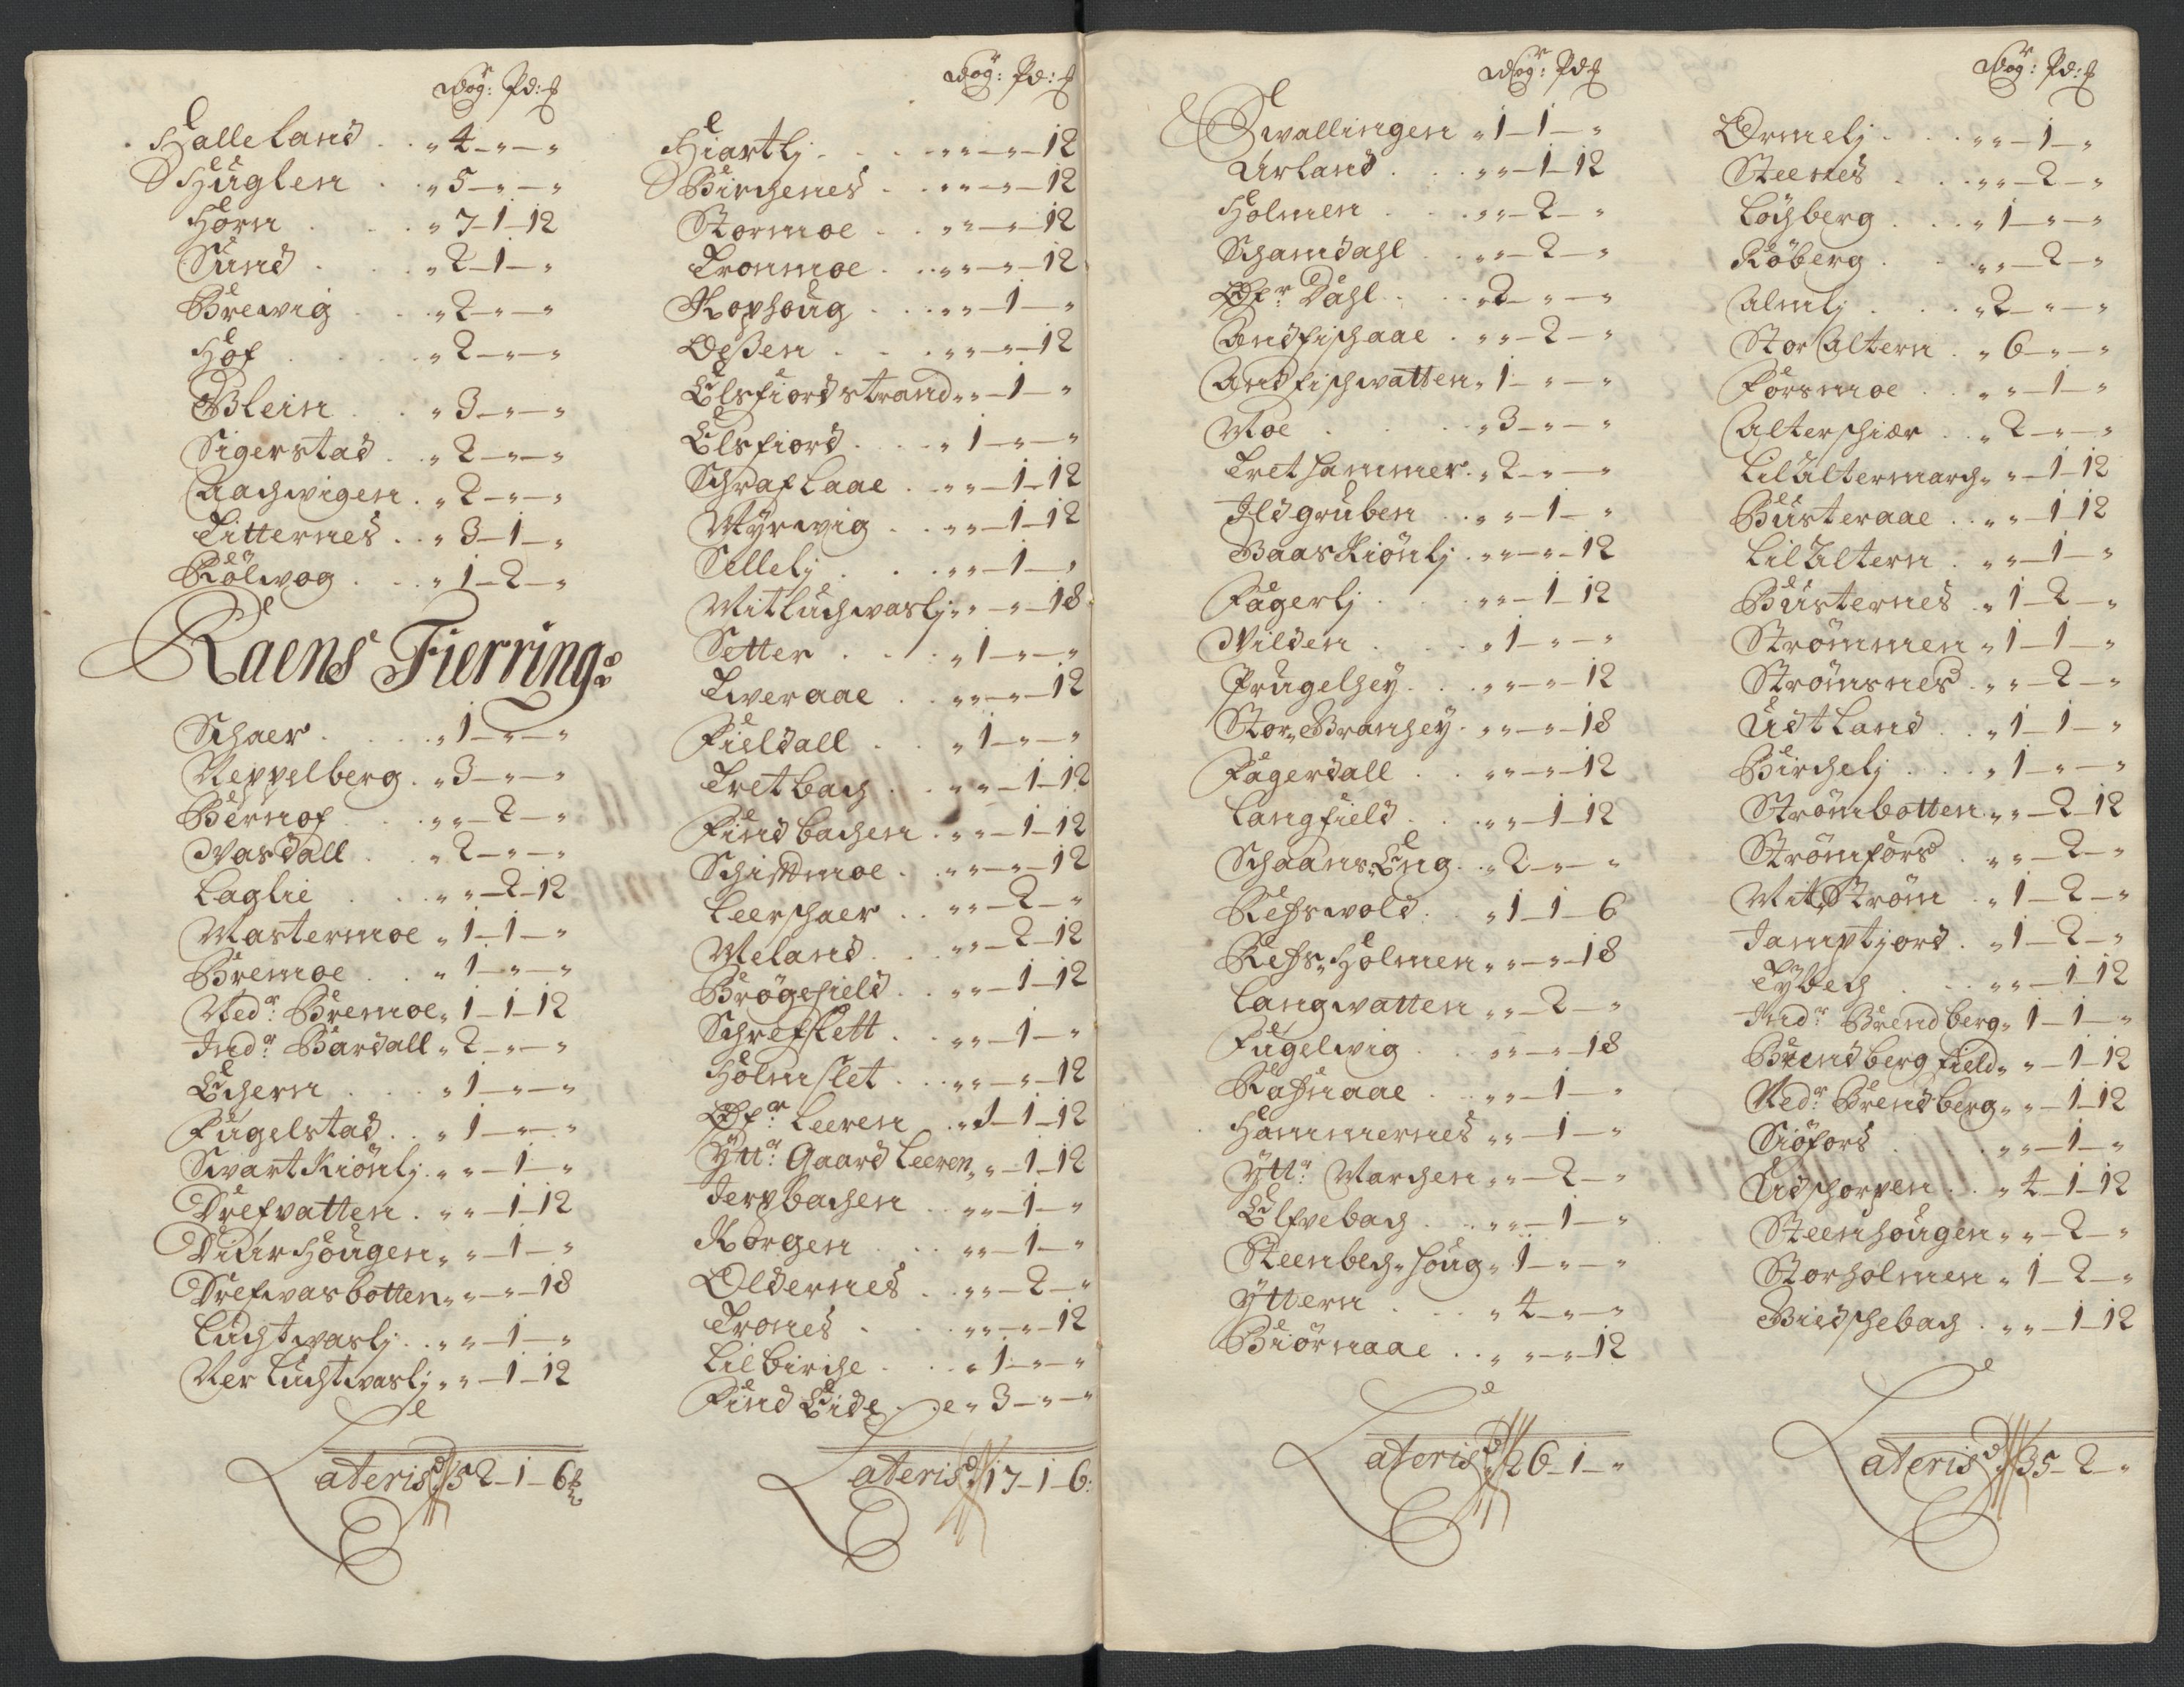 Wog: Pd: ₰
Halleland . . „ 4 – „ – „
Huglen . . „ 5 – „ – „
Horn . . „ 7 – 1 – 12
Sund . . „ 2 – 1 – „
Brewig . . „ 2 – „ – „
Hof . . „ 2 – „ – „
Blein . . „ 3 – „ – „
Sigerstad . „ 2 – „ – „
Aachwigen . „ 2 – „ – „
Titternes . . „ 3 – 1 – „
Rölwog . . „ 1 – 2 – „
Raens Fierring:
Schaer . . „ 1 – „ – „
Neppelberg . „ 3 – „ – „
Bernof . . „ „ – 2 – „
Wasdall . „ 2 – „ – „
Laglie . . „ „ – 2 – 12
Mastermoe „ 1 – 1 – „
Bremoe . . „ 1 – „ – „
Ned:r Bremoe „ 1 – 1 – 12
Ind:r Bardall „ 2 – „ – „
Echern . . „ 1 – „ – „
Fugelstad . . „ 1 – „ – „
Swartkiönlj . „ „ – 1 – „
Drefvatten . „ „ – 1 – 12
Diurhougen „ „ – 1 – „
Drefwasbotten „ „ – „ – 18
Luchtwaslj . . „ „ – 1 – „
Ner Luchtwaslj „ „ – 1 – 12
Lateris „ 52 – 1 – 6
Wog: Pd: ₰
Hiartlj . . „ „ – „ – 12
Birchenes . „ „ – „ – 12
Stormoe . . „ „ – „ – 12
Tronmoe . . „ „ – „ – 12
Kophoug . . „ „ – 1 – „
Oeßen . . „ „ – „ – 12
Elsfiordstrand „ „ – 1 – „
Elsfiord . . „ 1 – „ – „
Schraflaae . „ „ – 1 – 12
Myrwig . . „ „ – 1 – 12
Sellelj . . „ „ – 1 – „
Mitluchwaslj „ „ – „ – 18
Setter . . „ 1 – „ – „
Tweraae . . „ „ – „ – 12
Fieldall . . „ 1 – „ – „
Tretbach . . „ „ – 1 – 12
Findbachen . „ „ – 1 – 12
Schittmoe . „ „ – „ – 12
Leerschaer . . „ „ – 2 – „
Meland . . „ „ – 2 – 12
Brögefield . „ „ – 1 – 12
Schrefslett . „ „ – 1 – „
Holmslet . . „ „ – „ – 12
Of:r Leeren . „ 1 – 1 – 12
Ytt:r Gaard Leeren „ „ – 1 – 12
Jerpbachen . „ „ – 1 – „
Korgen . . „ „ – 1 – „
Oldernes . . „ „ – 2 – „
Trones . . „ „ – „ – 12
Lilbirche . . „ 1 – „ – „
Find Eide . . „ 3 – „ – „
Lateris „ 17 – 1 – 6:
Wog: Pd: ₰
Swallingen „ 1 – 1 – „
Urland . . „ „ – 1 – 12
Holmen . . „ „ – 2 – „
Schamdahl . „ „ – 2 – „
Of:r Dahl . . „ 2 – „ – „
Andfischaae . „ „ – 2 – „
Andfischwatten „ 1 – „ – „
Moe . . „ 3 – „ – „
Trethammer . „ 2 – „ – „
Ildgruben . . „ „ – 1 – „
Baaskiönlj . „ „ – „ – 12
Fagerlj . . „ „ – 1 – 12
Wilden . . „ 1 – „ – „
Prugelhey . . „ „ – „ – 12
Stor„Branhey . „ „ – „ – 18
Fagerdall . . „ „ – „ – 12
Langfield . . „ „ – 1 – 12
Schaans„Eng . „ 2 – „ – „
Refswold . „ 1 – 1 – 6
Refs„Holmen „ „ – „ – 18
Langwatten „ „ – 2 – „
Fugelwig . „ „ – „ – 18
Rafnaae . . „ „ – 1 – „
Hammernes „ „ – 1 – „
Ytt:r Marchen „ „ – 2 – „
Elfvebach . . „ „ – 1 – „
Steenbech„houg „ 1 – „ – „
Yttern . . „ 4 – „ – „
Biörnaae . . „ „ – „ – 12
Lateris „ 26 – 1 – „
Wog: Pd: ₰
Ormelj . . „ „ – 1 – „
Steenes . . „ „ – 2 – „
Löchberg . . „ 1 – „ – „
Röberg . . „ „ – 2 – „
Almlj . . „ 2 – „ – „
Stor Altern . „ 6 – „ – „
Forsmoe . . „ „ – 1 – „
Alterschiær . „ 2 – „ – „
Lil Altermarch „ „ – 1 – 12
Busteraae . . „ „ – 1 – 12
Lil Altern . „ „ – 1 – „
Busternes . „ 1 – 2 – „
Strömmen „ 1 – 1 – „
Strömsnes . „ „ – 2 – „
Udtland . . „ 1 – 1 – „
Birchelj . . „ 1 – „ – „
Strömbotten „ „ – 2 – 12
Strömfors . „ „ – 2 – „
Mit„Ström . „ 1 – 2 – „
Jamptjord . „ 1 – 2 – „
Tÿbech . . „ „ – 1 – 12
Ind:r Brendberg „ 1 – 1 – „
Brendbergfield „ „ – 1 – 12
Ned:r Brendberg „ „ – 1 – 12
Siöfors . . „ „ – 1 – „
Udschorpen . . „ 4 – 1 – 12
Steenhougen „ „ – 2 – „
Storholmen „ 1 – 2 – „
Biedschebach . „ „ – 1 – 12
Lateris „ 35 – 2 – „